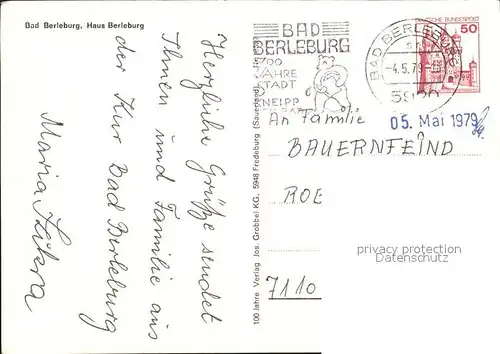 Bad Berleburg, Haus Berleburg
Herzliche Grüße sendet
Ihnen und Familie aus
der Kur Bad Berleburg
Maria
100 Jahre Verlag Jos. Grobbel KG., 5948 Fredeburg (Sauerland)
BAD
BERLEBURG
700
JAHRE
STADT
KNEIPP
BAD BERLEBURG
-4.5.79
5920
DEUTSCHE BUNDESPOST
50
05. Mai 1979
An Familie
BAUERNFEIND
ROE
7110
privacy protection
Datenschutz